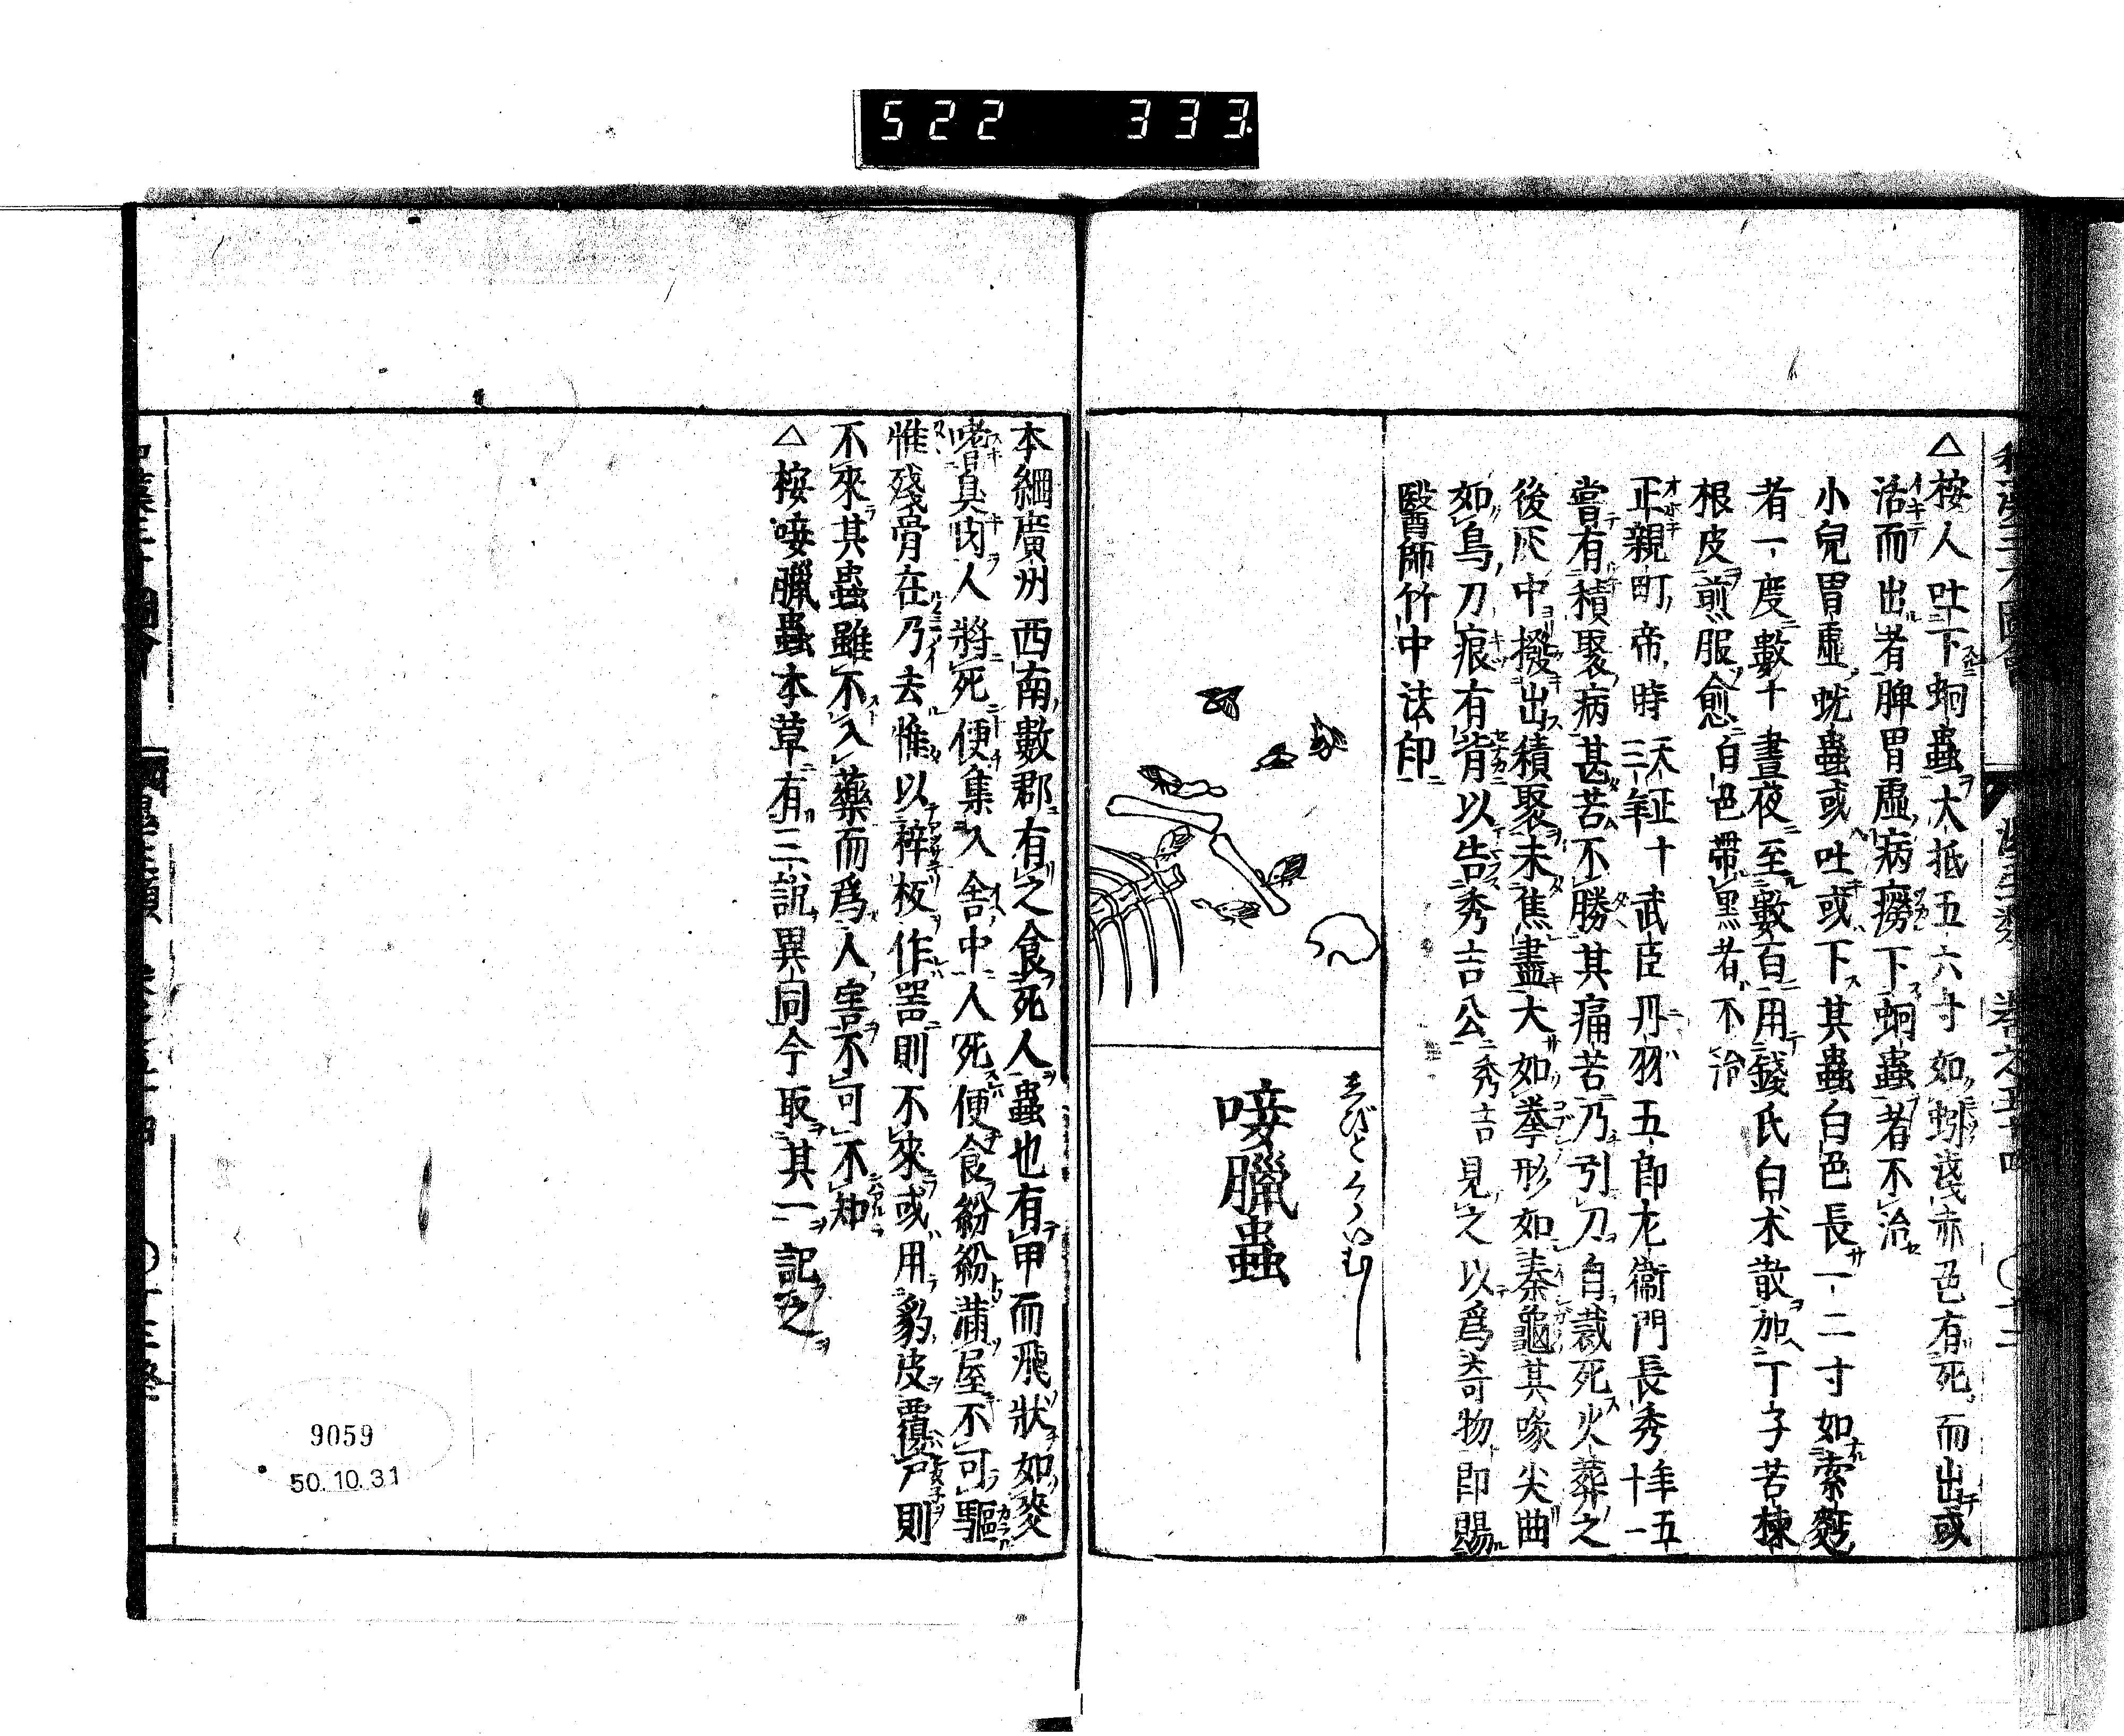 522 333
△按人吐下蚘蟲大抵五六寸如蚓淺赤色有死而出或
活而出者脾胃虛病癆下蚘蟲者不治
小兒胃虛蚘蟲或吐或下其蟲白色長一二寸如索麪
者一度數十晝夜至數百用錢氏白朮散加丁子苦楝
根皮煎服愈白色帶黑者不治
正親町帝時天正十三年武臣丹羽五郎左衞門長秀年五十一
嘗有積聚病甚苦不勝其痛苦乃引刀自裁死火葬之
後灰中撥出積聚未焦盡大如拳形如秦龜其喙尖曲
如鳥刀痕有背以告秀吉公秀吉見之以爲奇物即賜
醫師竹中法印
唼臘蟲
本綱廣州西南數郡有之食死人蟲也有甲而飛狀如麥
嗜臭肉人將死便集入舍中人死便食紛紛滿屋不可驅
惟殘骨在乃去惟以梓板作器則不來或用豹皮覆尸則
不來其蟲雖不入藥而爲人害不可不知
△按唼臘蟲本草有三說異同今取其一記之
9059
50.10.31